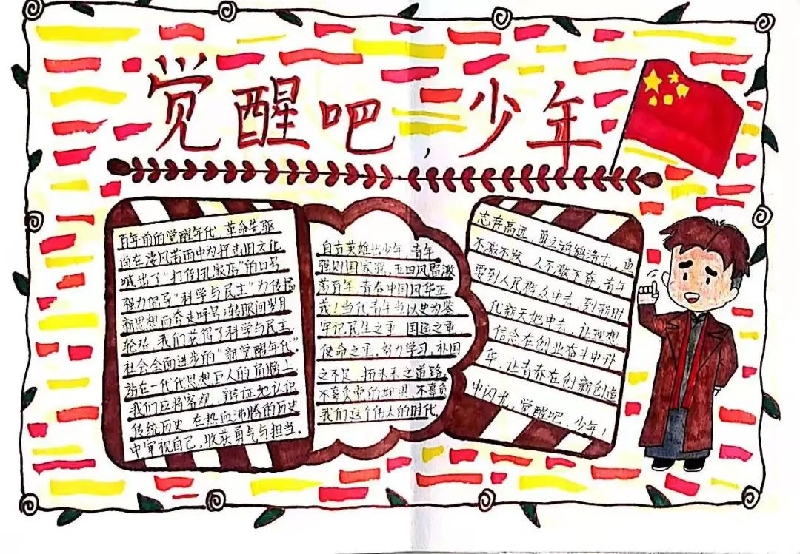 觉醒吧，少年
百年前的觉醒年代，革命先驱
们在漫风苦雨中为抨击旧文化
喊出了"打倒孔家店"的口号
努力倡导"科学与民主"为传播
新思想而奔走呼号；转眼间岁月
轮转，我们获得了科学与民主
社会全面进步的"新觉醒年代"。
站在一代代思想巨人的肩膀上
我们应将客观、辩证地认识
传统历史，在热血沸腾的历史
中审视自己，收获勇气与担当。
自古英雄出少年，青年
强则国家强，五四风雷激
荡百年，青春中国风华正
茂！当代青年当以史为鉴
牢记民生之重，国运之重
使命之重，努力学习，补国
之不足，扬未来之
不负党中的 ，不喜负
我们这个伟大的时代
志存高远，勇立
不激不发，人不激不奋，青年
要到人民群众中去，到新时
代新天地中去，让理想
信念在创业奋斗中升
华，让青春在创新创造
中闪光，觉醒吧，少年！